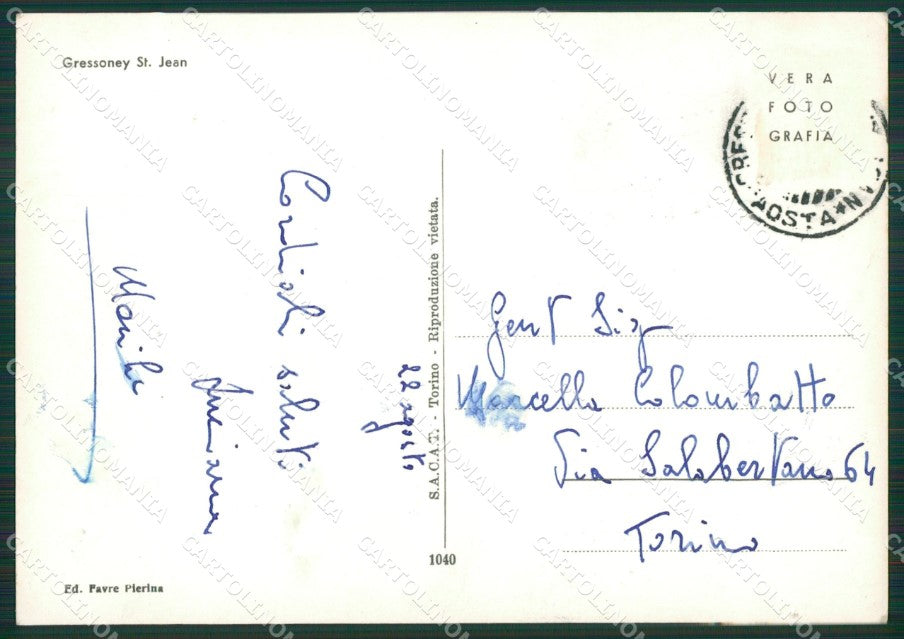 Gressoney St. Jean
VERA
FOTO
GRAFIA
AOSTA
Cordiali saluti
Luciana
22 agosto
S.A.C.A.T. - Torino - Riproduzione vietata.
1040
Gent Sig
Marcella Colombatto
Via Salbertano 64
Torino
Ed. Favre Pierina
CARTOLINOMANIA